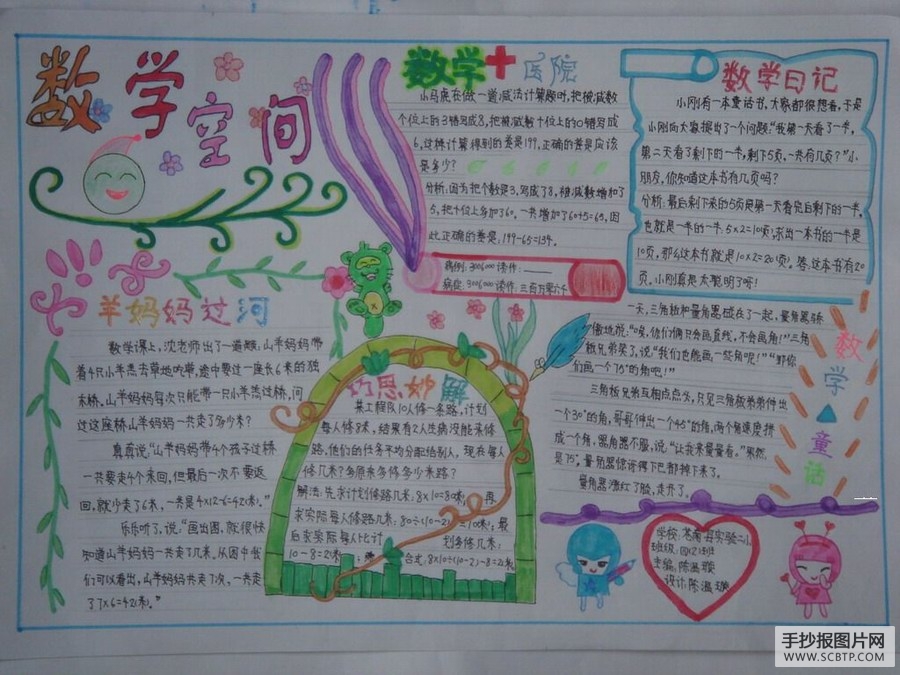 数学空间
数学+医院
小马虎在做一道减法计算题时,把被减数
个位上的3错写成8,把被减数十位上的0错写成
6,这样计算得到的差是199,正确的差是应该
是多少?
分析:因为把个数是3,写成了8,被减数增加了
5,把十位上多加了60,一共增加了60+5=65,因
此正确的差是:199-65=134。
病例:3006000 读作:
病症:3006000读作:三百万零六千
数学日记
小刚有一本童话书,大家都很想看,于是
小刚向大家提出了一个问题:"我第一天看了一半,
第二天看了剩下的一半,剩下5页,一共有几页?"小
朋友,你知道这本书有几页吗?
分析:最后剩下来的5页是第一天看完后剩下的一半,
也就是一半的一半.5×2=10(页);求出一本书的一半是
10页,那么这本书就是10×2=20(页).答:这本书有20
页.小刚真是太聪明了呀!
羊妈妈过河
数学课上,沈老师出了一道题:山羊妈妈带
着4只小羊去草地吃草,途中要过一座长6米的独
木桥。山羊妈妈每次只能带一只小羊过桥,问
过这座桥山羊妈妈一共走了多少米?
真真说"山羊妈妈带4个孩子过桥
一共要走4个来回,但最后一次不要返
回,就少走了6米,一共是4×12-6=42(米)。"
乐乐听了,说:"画出图,就很快
知道山羊妈妈一共走了几米,从图中我
们可以看出,山羊妈妈共走了7次,一共走
了7×6=42(米)。"
巧思妙解
某工程队10人修一条路,计划
每人修8米,结果有2人生病没能来修
路,他们的任务平均分配给别人,现在每人
修几米?多原来多修多少米路?
解法:先求计划修路几米:8×10=80米, 再
求实际每人修路几米:80÷(10-2)=10(米);最
后求实际每人比计 划多修几米:
10-8=2(米) 8×10÷(10-2)-8=2(米)
数学童话
一天,三角板和量角器碰在了一起,量角器骄
傲地说:"唉,你们俩只会画直线,不会画角!"三角
板兄弟笑了,说"我们也能画一些角呢!""那你
们画一个75°的角吧!"
三角板兄弟互相点点头,只见三角板弟弟伸出
一个30°的角,哥哥伸出一个45°的角,两个角连度拼
成一个角,量角器不服,说:"让我来量量看。"果然,
是75°,量角器惊讶得下巴都掉下来了。
量角器满红了脸,走开了。
学校:苍南县实验一小
主编:陈温璇
设计:陈温璇
手抄报图片网
WWW.SCBTP.COM